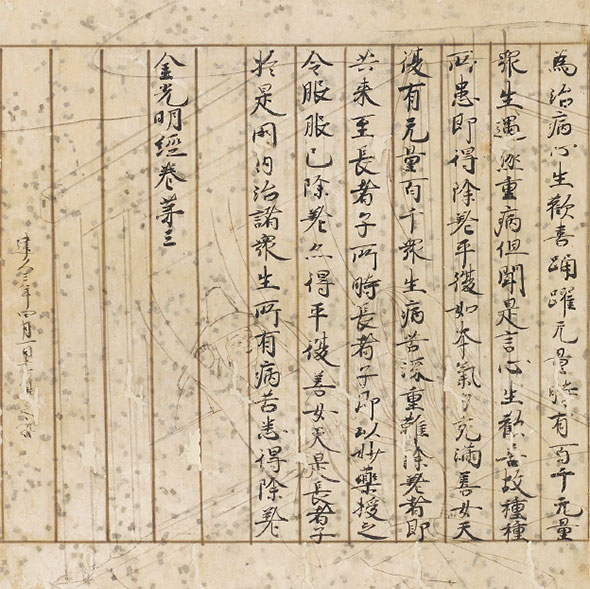 為治病心生歡喜踊躍无量時有百千无量
衆生遇極重病但聞是言心生歡喜故種種
所患即得除差平復如本氣力充滿善女天
復有无量百千衆生病苦深重難除差者即
共来至長者子所時長者子即以妙藥授之
令服服已除差亦得平復善女天是長者子
於是國内治諸衆生所有病苦悉得除差
金光明經卷第三
建久三年四月一日